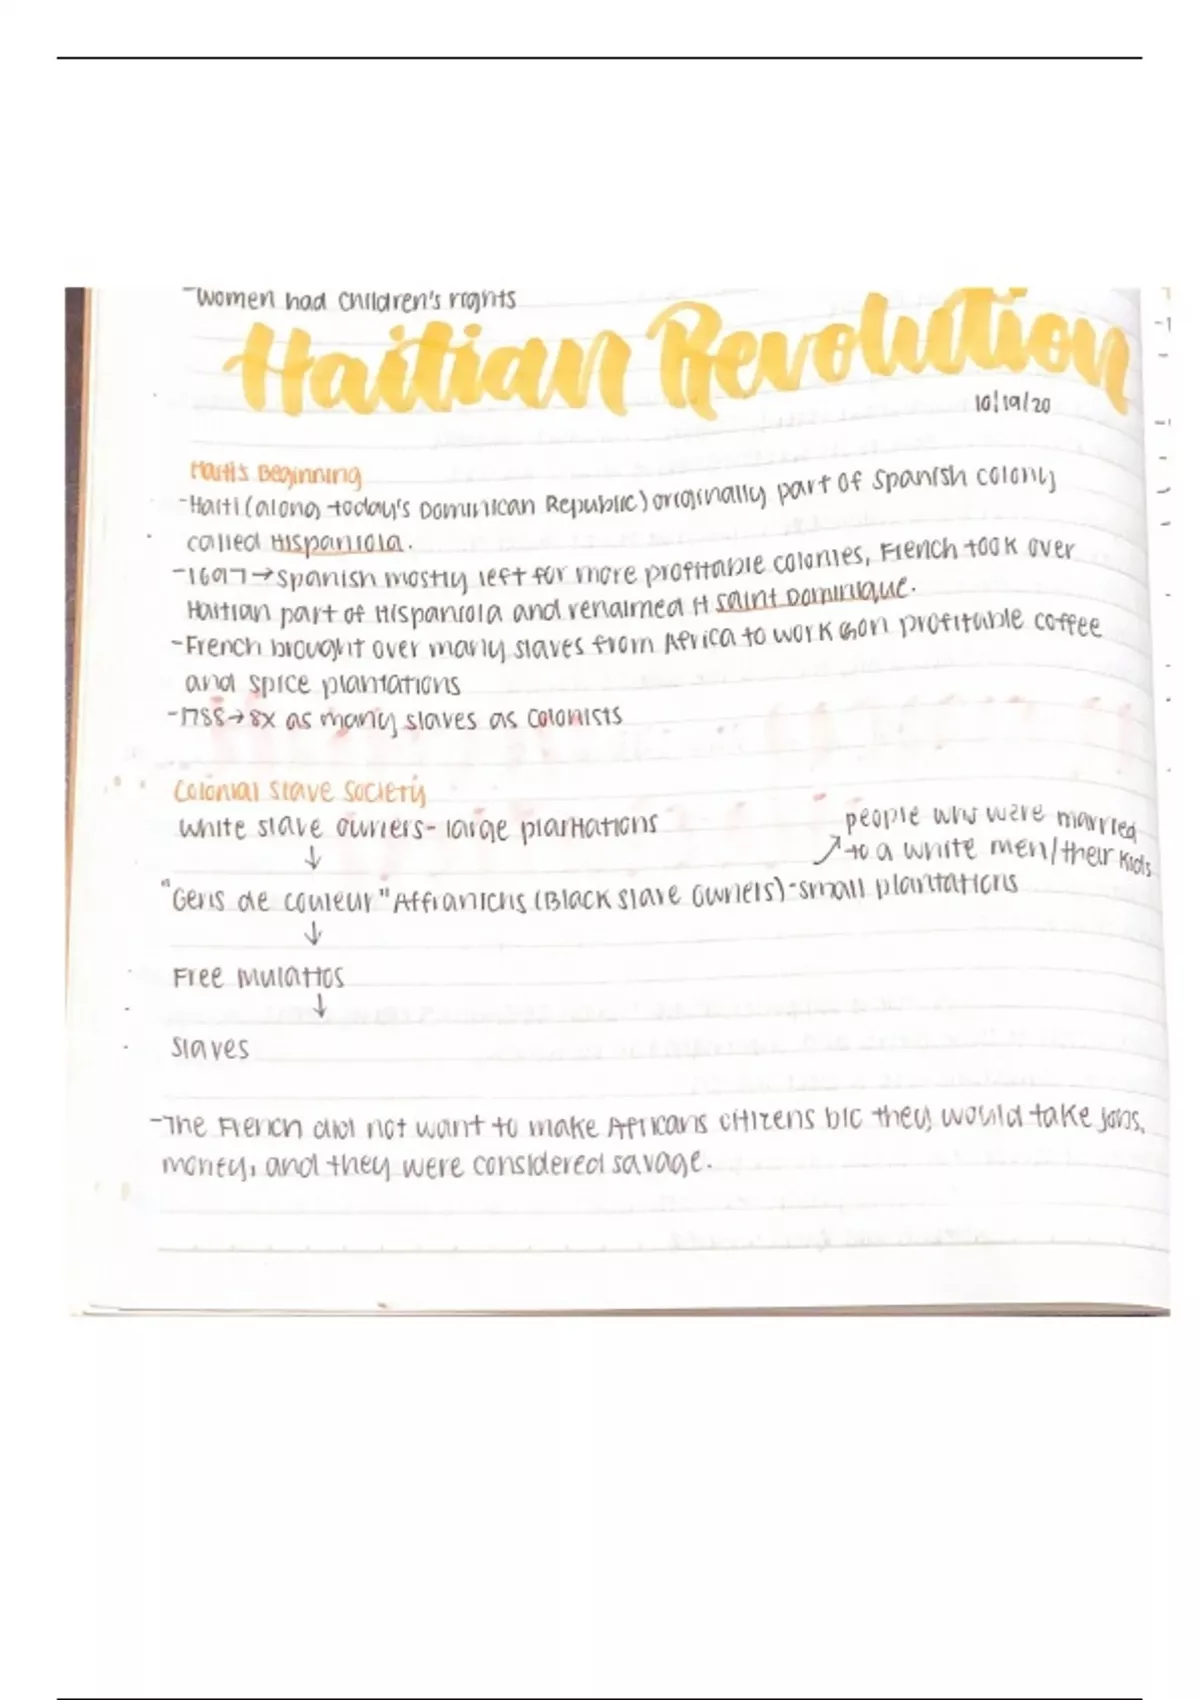 -Women had Children's rights
Haitian Revolution
10/19/20
Haiti's Beginning
-Haiti (along today's Dominican Republic) originally part of Spanish colony
called Hispaniola.
-1697→Spanish mostly left for more profitable colonies, French took over
Haitian part of Hispaniola and renaimed it Saint Dominique.
-French brought over many slaves from Africa to work on profitable coffee
and spice plantations
-1788→8x as many slaves as colonists
Colonial Slave Society
White slave owners- large plantations
people who were married
↗to a white men/their kids
↓
"Gens de couleur" Affranichs (Black slave owners)-small plantations
↓
Free Mulattos
↓
Slaves
-The French did not want to make Africans citizens b/c they would take jobs,
money, and they were considered savage.